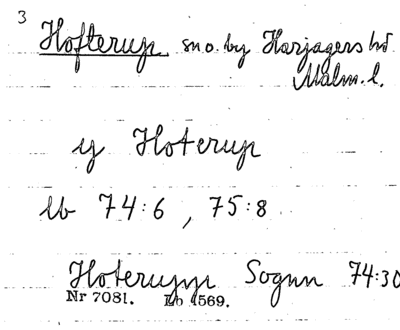 3
Hofterup sn o. by Harjagers hd
Malm. l.
y Hoterup
lb 74:6 , 75:8
Hoterupp Sognn 74:30
Nr 7081. Lb 1569.